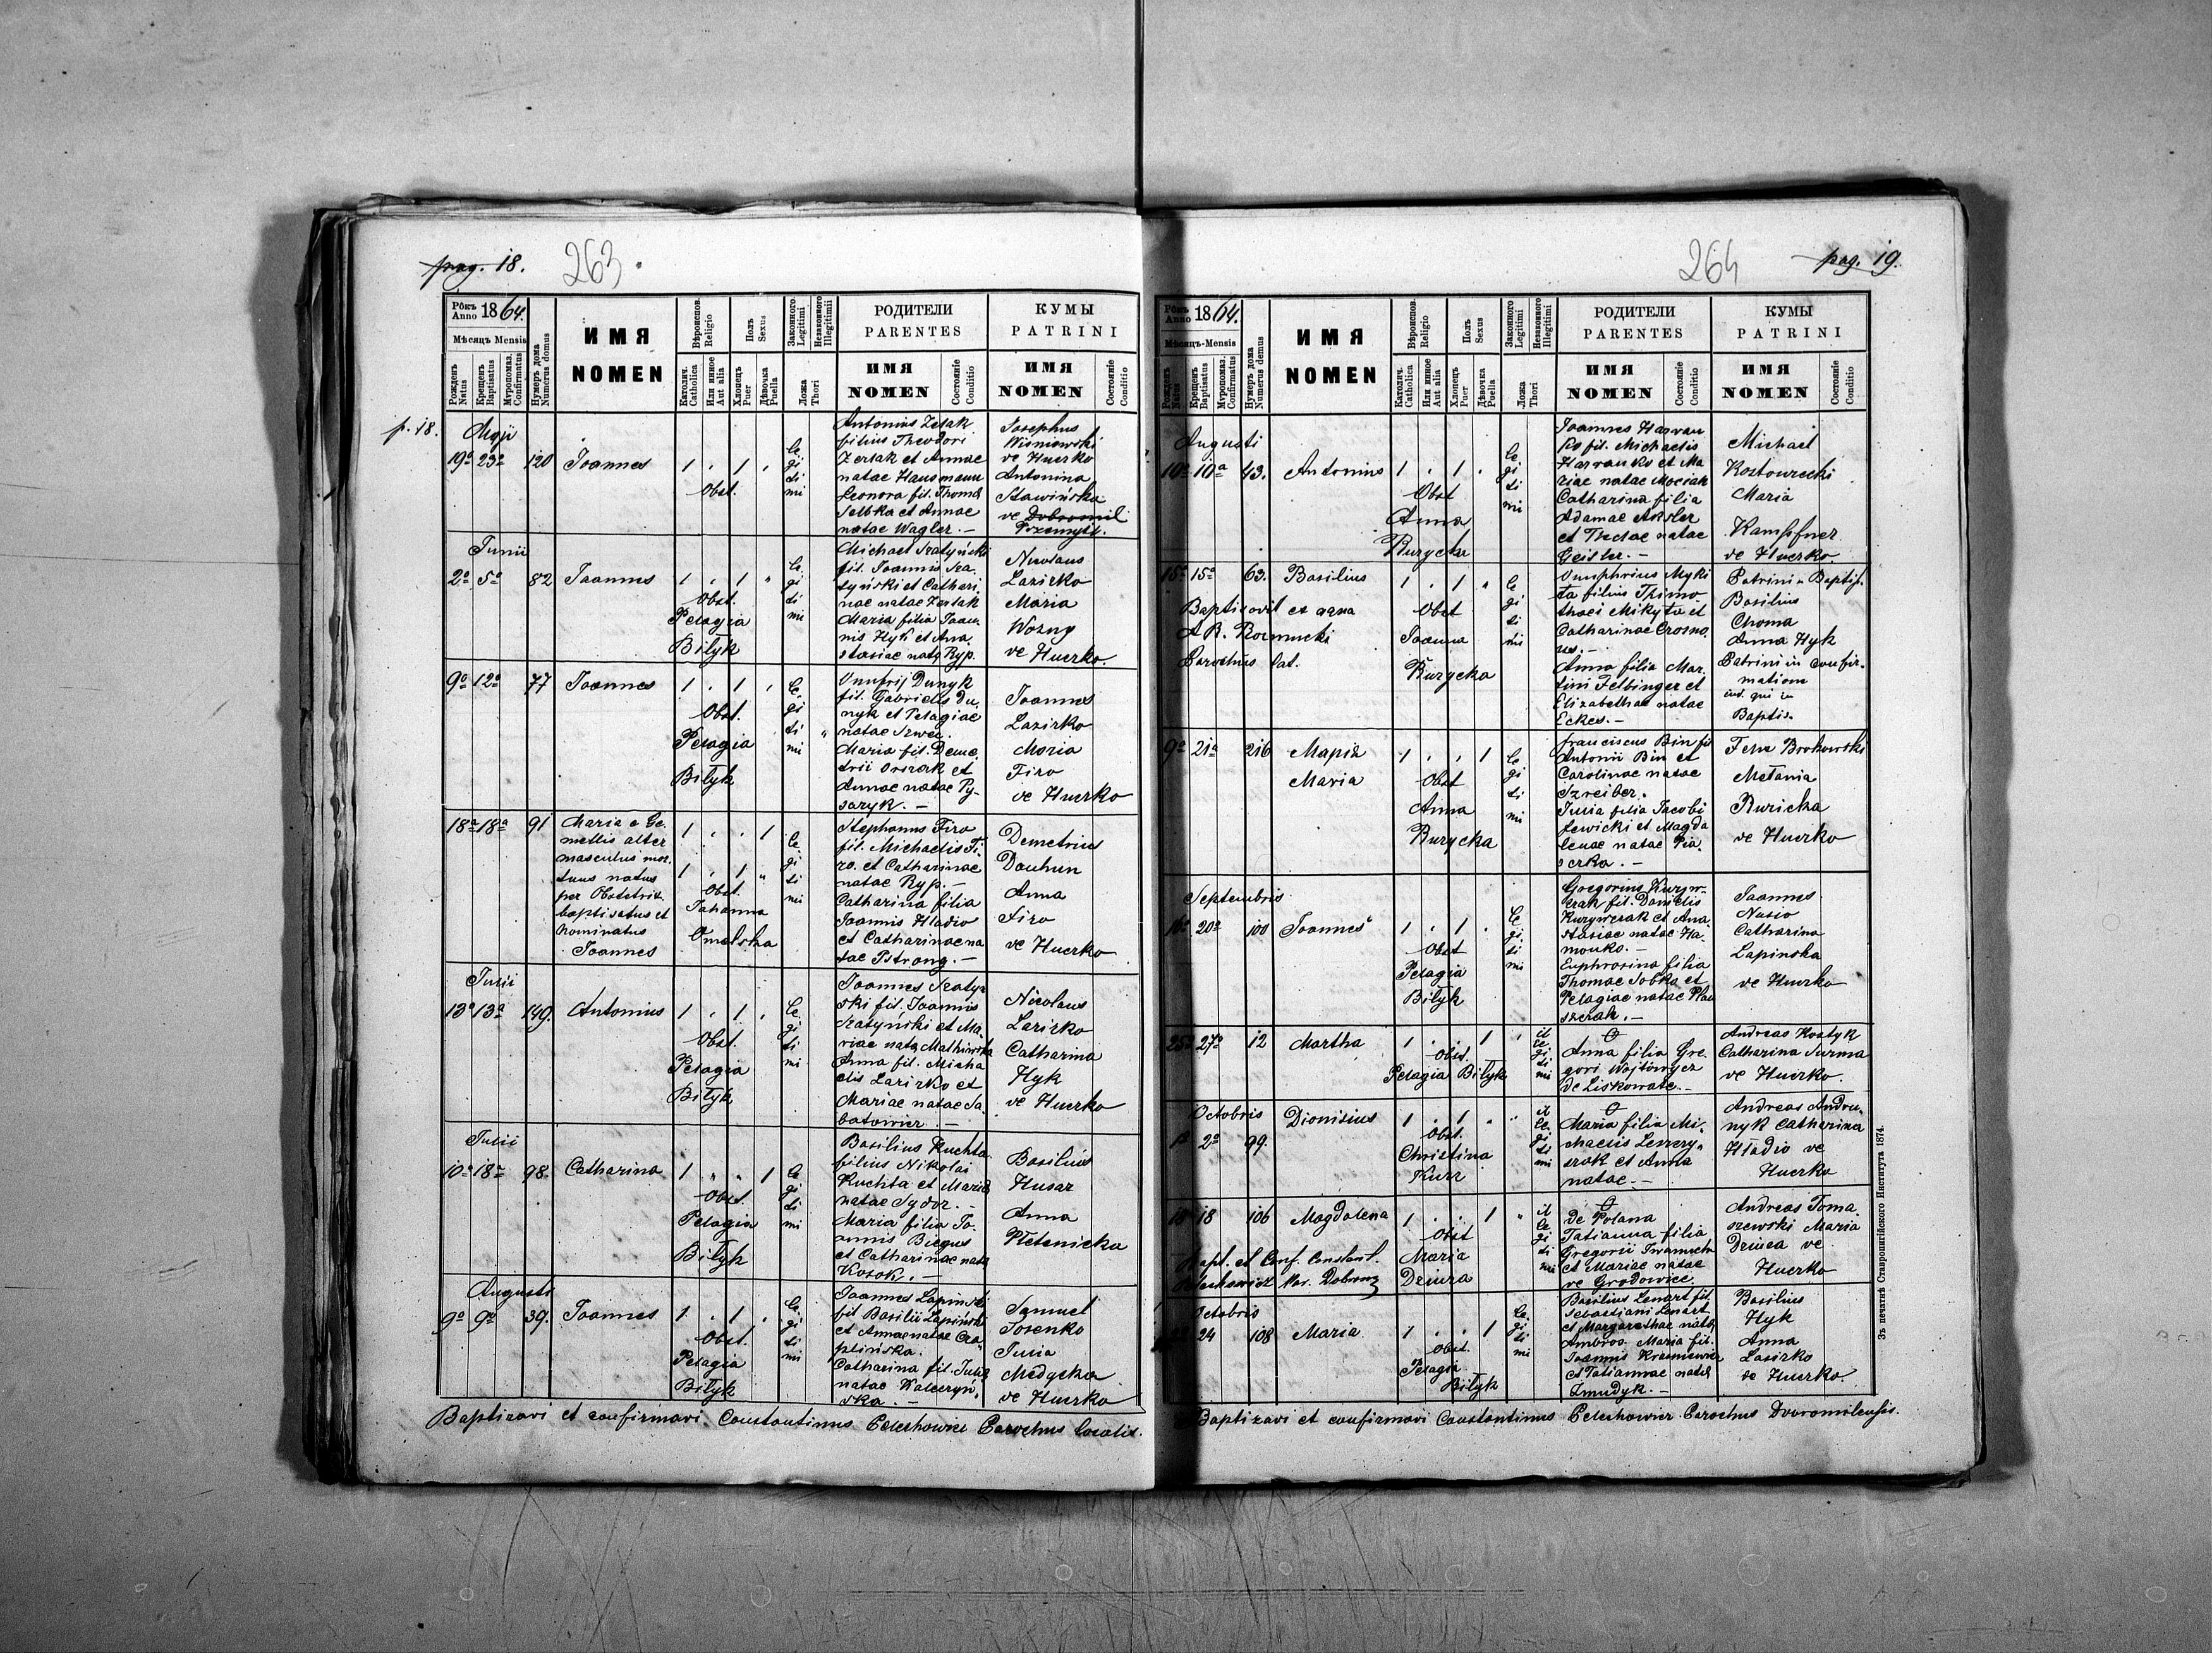 pag. 18.
263.
Рôкъ Anno 1864.
Мѣсяцъ Mensis
Рожденъ Natus
Крещенъ Baptisatus
Муропомаз. Confirmatus
Нумеръ дома Numerus domus
ИМЯ
NOMEN
Вѣроиспов. Religio
Католич. Catholica
Или инное Aut alia
Полъ Sexus
Хлопецъ Puer
Дѣвочка Puella
Законного Legitimi
Незаконного Illegitimi
Ложа Thori
РОДИТЕЛИ
PARENTES
ИМЯ
NOMEN
Состояніе Conditio
КУМЫ
PATRINI
ИМЯ
NOMEN
Состояніе Conditio
p. 18.
Maji
19a 23a 120 Joannes 1 . 1 .
Obst.
le
gi
ti
mi
Antonius Zelak
filius Theodori
Zelak et Annae
natae Hausmann
Leonora fil. Thomae
Sebka et Annae
natae Wagler. —
Josephus
Wisniowski
de Huczko
Antonina
Stawińska
de Dobromil
Przemyśl.
Junii
2a 5a 82 Joannes 1 . 1 "
Obst.
Pelagia
Biłyk
le
gi
ti
mi
Michael Szatyński
fil. Joannis Sza
tyński et Cathari
nae natae Zelak
Maria filia Joan
nis Hyk et Ana
stasiae natae Ryp.
Nicolaus
Lazirko
Maria
Wozny
de Huczko.
9a 12a 77 Joannes 1 . 1 .
Obst.
Pelagia
Biłyk
le
gi
ti
mi
Onufrij Dunyk
fil. Gabrielis Du
nyk et Pelagiae
natae Szwec.
Maria fil. Deme
trii Orszak et
Annae natae Py-
saryk. —
Joannes
Lazirko
Maria
Firo
de Huczko
18a 18a 91 Maria e Ge
mellis alter
masculus mor
tuus natus
per Obstetric.
baptisatus et
nominatus
Joannes
1 . . 1
1 . 1 "
Obst.
Johanna
Omelska
le
gi
ti
mi
Stephanus Firo
fil. Michaelis Fi
ro. et Catharinae
natae Ryp. —
Catharina filia
Joannis Hladio
et Catharinae na
tae Pstrong. —
Demetrius
Dauhun
Anna
Firo
de Huczko
Julii
13a 13a 149. Antonius 1 . 1 .
Obst.
Pelagia
Biłyk
le
gi
ti
mi
Joannes Szatyń
ski fil. Joannis
Szatyński et Ma
riae natae
Anna fil. Micha
elis Lazirko et
Mariae natae Sa
batowicz. —
Nicolaus
Lazirko
Catharina
Hyk
de Huczko
Julii
10a 18a 98. Catharina 1 " " 1
Obst.
Pelagia
Biłyk
le
gi
ti
mi
Basilius Kuchta
filius Nikolai
Kuchta et Mariae
natae Sydor. —
Maria filia Jo
annis Biegus
et Catharinae natae
Kosok. —
Basilius
Husar
Anna
Pletenicka
Augusti
9a 9a 39. Joannes 1 . 1 .
Obst.
Pelagia
Biłyk
le
gi
ti
mi
Joannes Lapinski
fil Basilii Lapiński
et Annae natae Cza
plińska.
Catharina fil. Juliae
natae Kaleczyń
ska. —
Samuel
Sosenko
Julia
Medycka
de Huczko
Baptizavi et confirmavi. Constantinus Pelechowicz Parochus localis.
264
pag. 19.
Рôкъ Anno 1864.
Мѣсяцъ-Mensis
Рожденъ Natus
Крещенъ Baptisatus
Муропомаз. Confirmatus
Нумеръ дома Numerus domus
ИМЯ
NOMEN
Вѣроиспов. Religio
Католич. Catholica
Или инное Aut alia
Полъ Sexus
Хлопецъ Puer
Дѣвочка Puella
Законного Legitimi
Незаконного Illegitimi
Ложа Thori
РОДИТЕЛИ
PARENTES
ИМЯ
NOMEN
Состояніе Conditio
КУМЫ
PATRINI
ИМЯ
NOMEN
Состояніе Conditio
Augusti
10a 10a 43. Antonius 1 . 1 .
Obst
Anna
Ruzycka
le
gi
ti
mi
Joannes Hawran
ko fil. Michaelis
Hawranko et Ma
riae natae Mociak
Catharina filia
Adamae Ansler
et Theclae natae
Geisler. —
Michael
Kostowiecki
Maria
Kampfner
de Huczko.
15a 15a 63. Basilius 1 . 1 "
Baptisavit ex aqua
A R. Rozmucki
Parochus lat.
Obst
Joanna
Ruzycka
le
gi
ti
mi
Onuphrius Myki
ta filius Thimo
thaei Mikyta et
Catharinae Crosno
us. —
Anna filia Mar
tini Felbinger et
Elizabethae natae
Eckes. —
Patrini a Baptis.
Basilius
Choma
Anna Hyk
Patrini in confir-
matione
iid. qui in
Baptis.
9a 21a 216 Марія
Maria
1 . . 1
Obst
Anna
Ruzycka
le
gi
ti
mi
Franciscus Bin fil
Antonii Bin et
Carolinae natae
Szreiber.
Julia filia Jacobi
Lewicki et Magda
lenae natae Pia
serka. —
Felix Brokowski
Melania
Ruzicka
de Huczko
Septembris
20a 100 Joannes 1 . 1 .
Obst
Pelagia
Biłyk
le
gi
ti
mi
Gregorius Kuryw-
czak fil. Danielis
Kurywczak et Ana
stasiae natae Ha
monko. —
Euphrosina filia
Thomae Sobka et
Pelagiae natae Plau
szczak. —
Joannes
Nasio
Catharina
Lapinska
de Huczko
25a 27a 12 Martha 1 . . 1 "
Obst.
Pelagia Biłyk
il
le
gi
ti
mi
O
Anna filia Gre
gori Wojtowycz
de Liskowate. —
Andreas Kostyk
Catharina Surma
de Huczko.
Octobris
1a 2a 99. Dionisius 1 . 1 " "
Obst.
Christina
Kurz
il
le
gi
ti
mi
O
Maria filia Mi
chaelis Lewczy
szak et Anna
natae —
Andreas Andru
nyk Catharina
Hladio de
Huczko
18 18 106 Magdalena 1 . . 1 "
Obst
Bapt. et Conf. Constant.
Pelechowicz Par. Dobrom
Maria
Dziura
il
le
gi
ti
mi
O
De Polana
Tatianna filia
Gregorii
et Mariae natae
de Grodowice.
Andreas Toma
szewski Maria
Dziura de
Huczko
Octobris
24 108 Maria 1 . . 1
Obst.
Pelagia
Biłyk
le
gi
ti
mi
Basilius Lenart fil.
Sebastiani Lenart
et Margarethae natae
Ambroz. Maria fil.
Joannis
et Tatiannae natae
Żmudyk. —
Basilius
Hyk
Anna
Lasirko
de Huczko.
Baptizavi et confirmavi Constantinus Pelechowicz Parochus Dobromilensis.
Зъ печатнѣ Ставропигійского Института 1874.